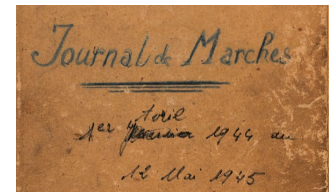 Journal de Marches
Avril
1er Janvier 1944 au
12 Mai 1945